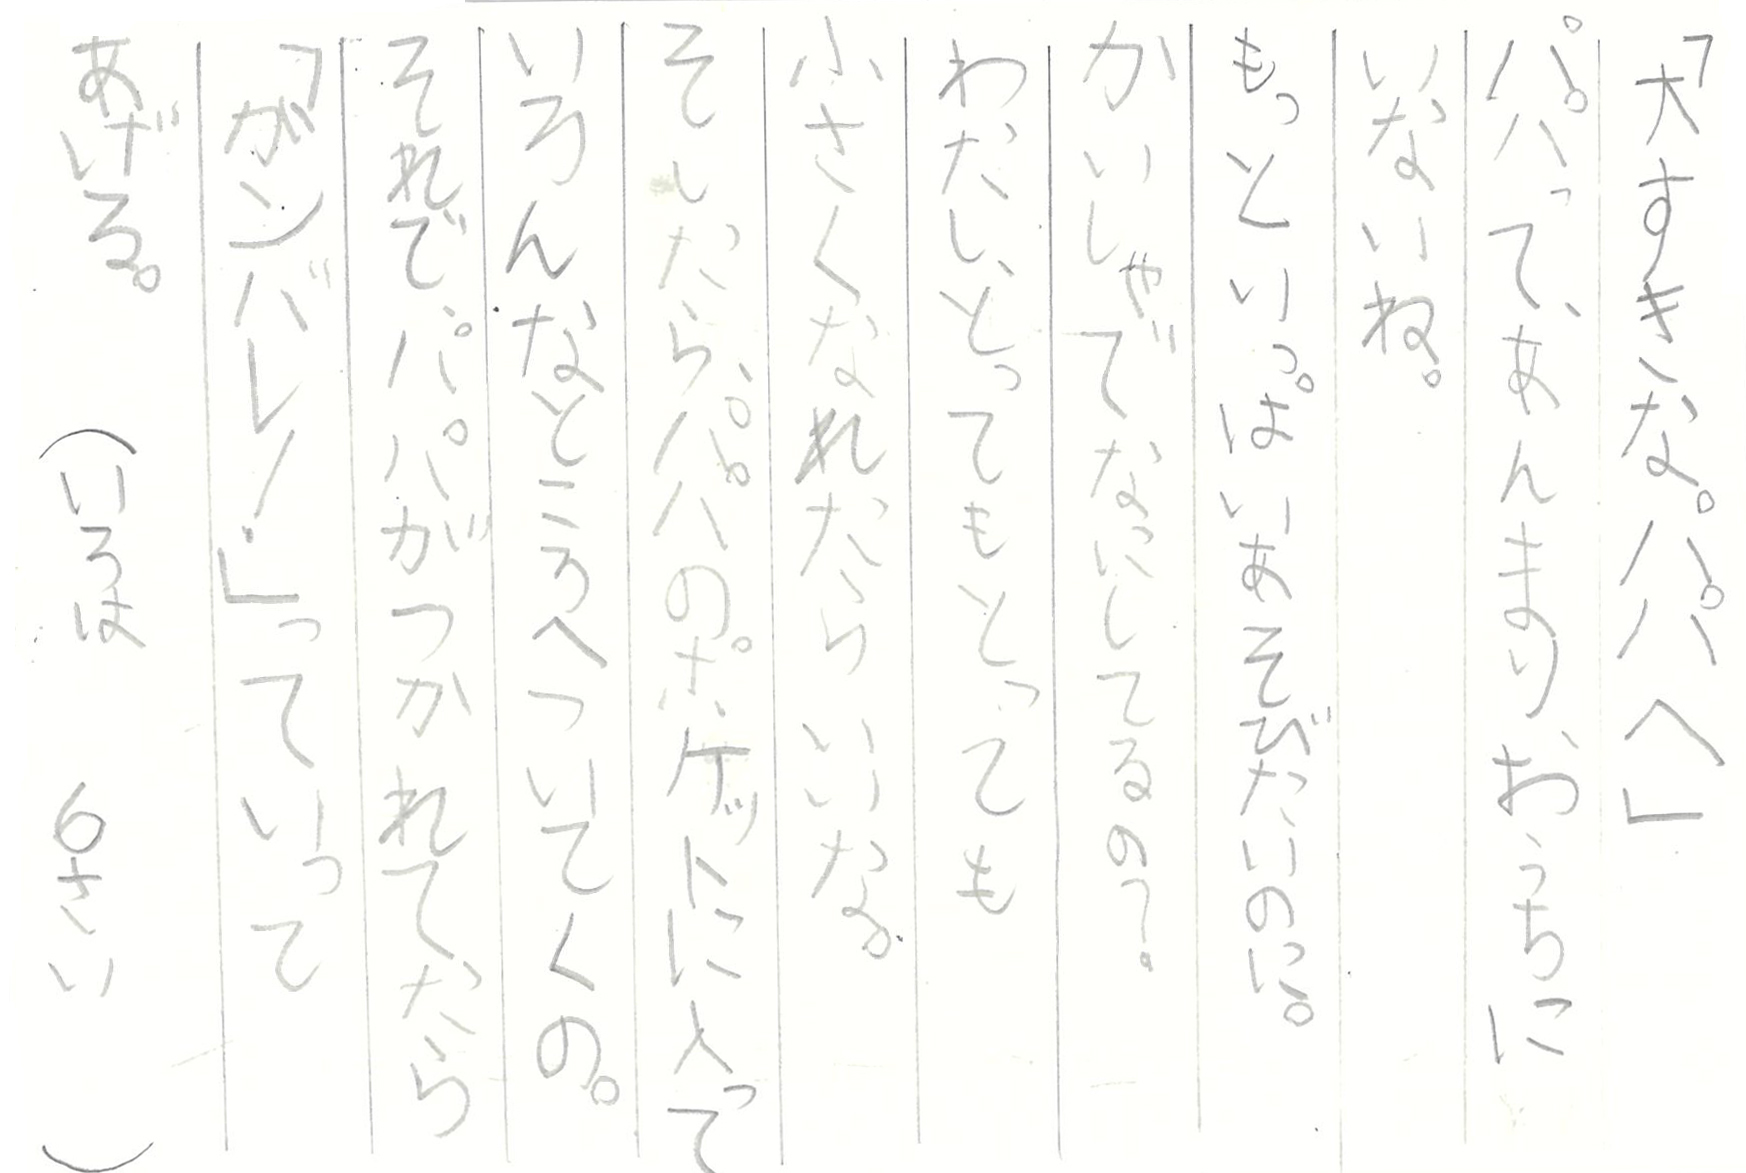 「大すきな。パパへ」
パパって、あんまり、おうちに
いないね。
もっといっぱいあそびたいのに。
かいしゃでなにしてるの？
わたし、とってもとっても
小さくなれたらいいな。
そしたら、パパのポケットに入って
いろんなところへついてくの。
それでパパがつかれてたら
「がンバレ！」っていって
あげる。　（いろは　6さい　）